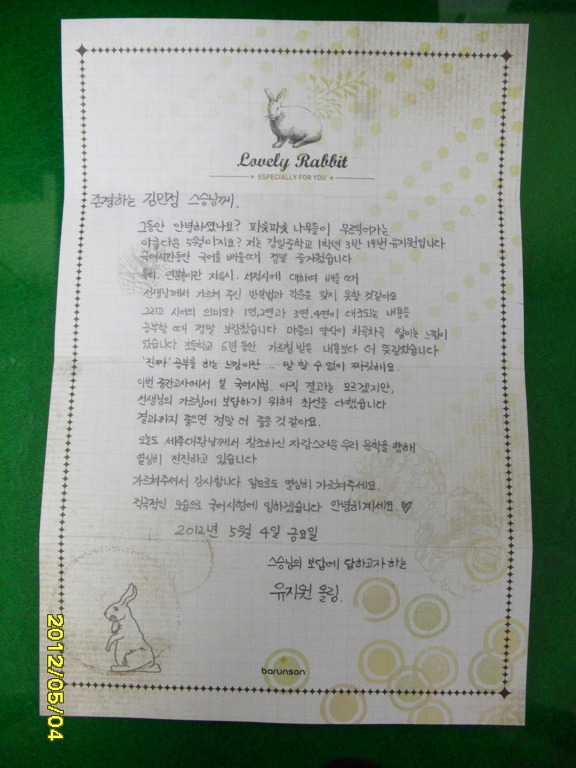 Lovely Rabbit
★ ESPECIALLY FOR YOU ★
존경하는 김민정 스승님께.
그동안 안녕하셨나요? 파릇파릇 나무들이 무르익어가는
아름다운 5월이지요? 저는 강일중학교 1학년 3반 19번 유지원입니다
국어시간동안 국어를 배울때 정말 즐거웠습니다
특히, 자유시. 서정시에 대하여 배울 때
선생님께서 가르쳐 주신 반복법과 각운은 잊지 못할것같아요
그리고 시어의 의미와 1연,2연과 3연,4연이 대조되는 내용을
공부할 때 정말 보람찼습니다 마음의 양식이 차곡차곡 쌓이는 느낌이
있습니다 초등학교 6년 동안 가르침 받은 내용보다 더 뜻깊었습니다
'진짜' 공부를 하는 느낌이란... 말 할 수 없이 짜릿해요.
이번 중간고사에서 본 국어시험. 아직 결과는 모르겠지만,
선생님의 가르침에 보답하기 위해 최선을 다했습니다
결과까지 좋으면 정말 더 좋을 것 같아요.
오늘도 세종대왕님께서 창조하신 자랑스러운 우리 문학을 향해
열심히 전진하고 있습니다
가르쳐주셔서 감사합니다 앞으로도 열심히 가르쳐주세요.
적극적인 모습으로 국어시험에 임하겠습니다 안녕히계세요.♥
2012년 5월 4일 금요일
스승님의 보답에 답하고자 하는
유지원 올림.
barunson
2012/05/04